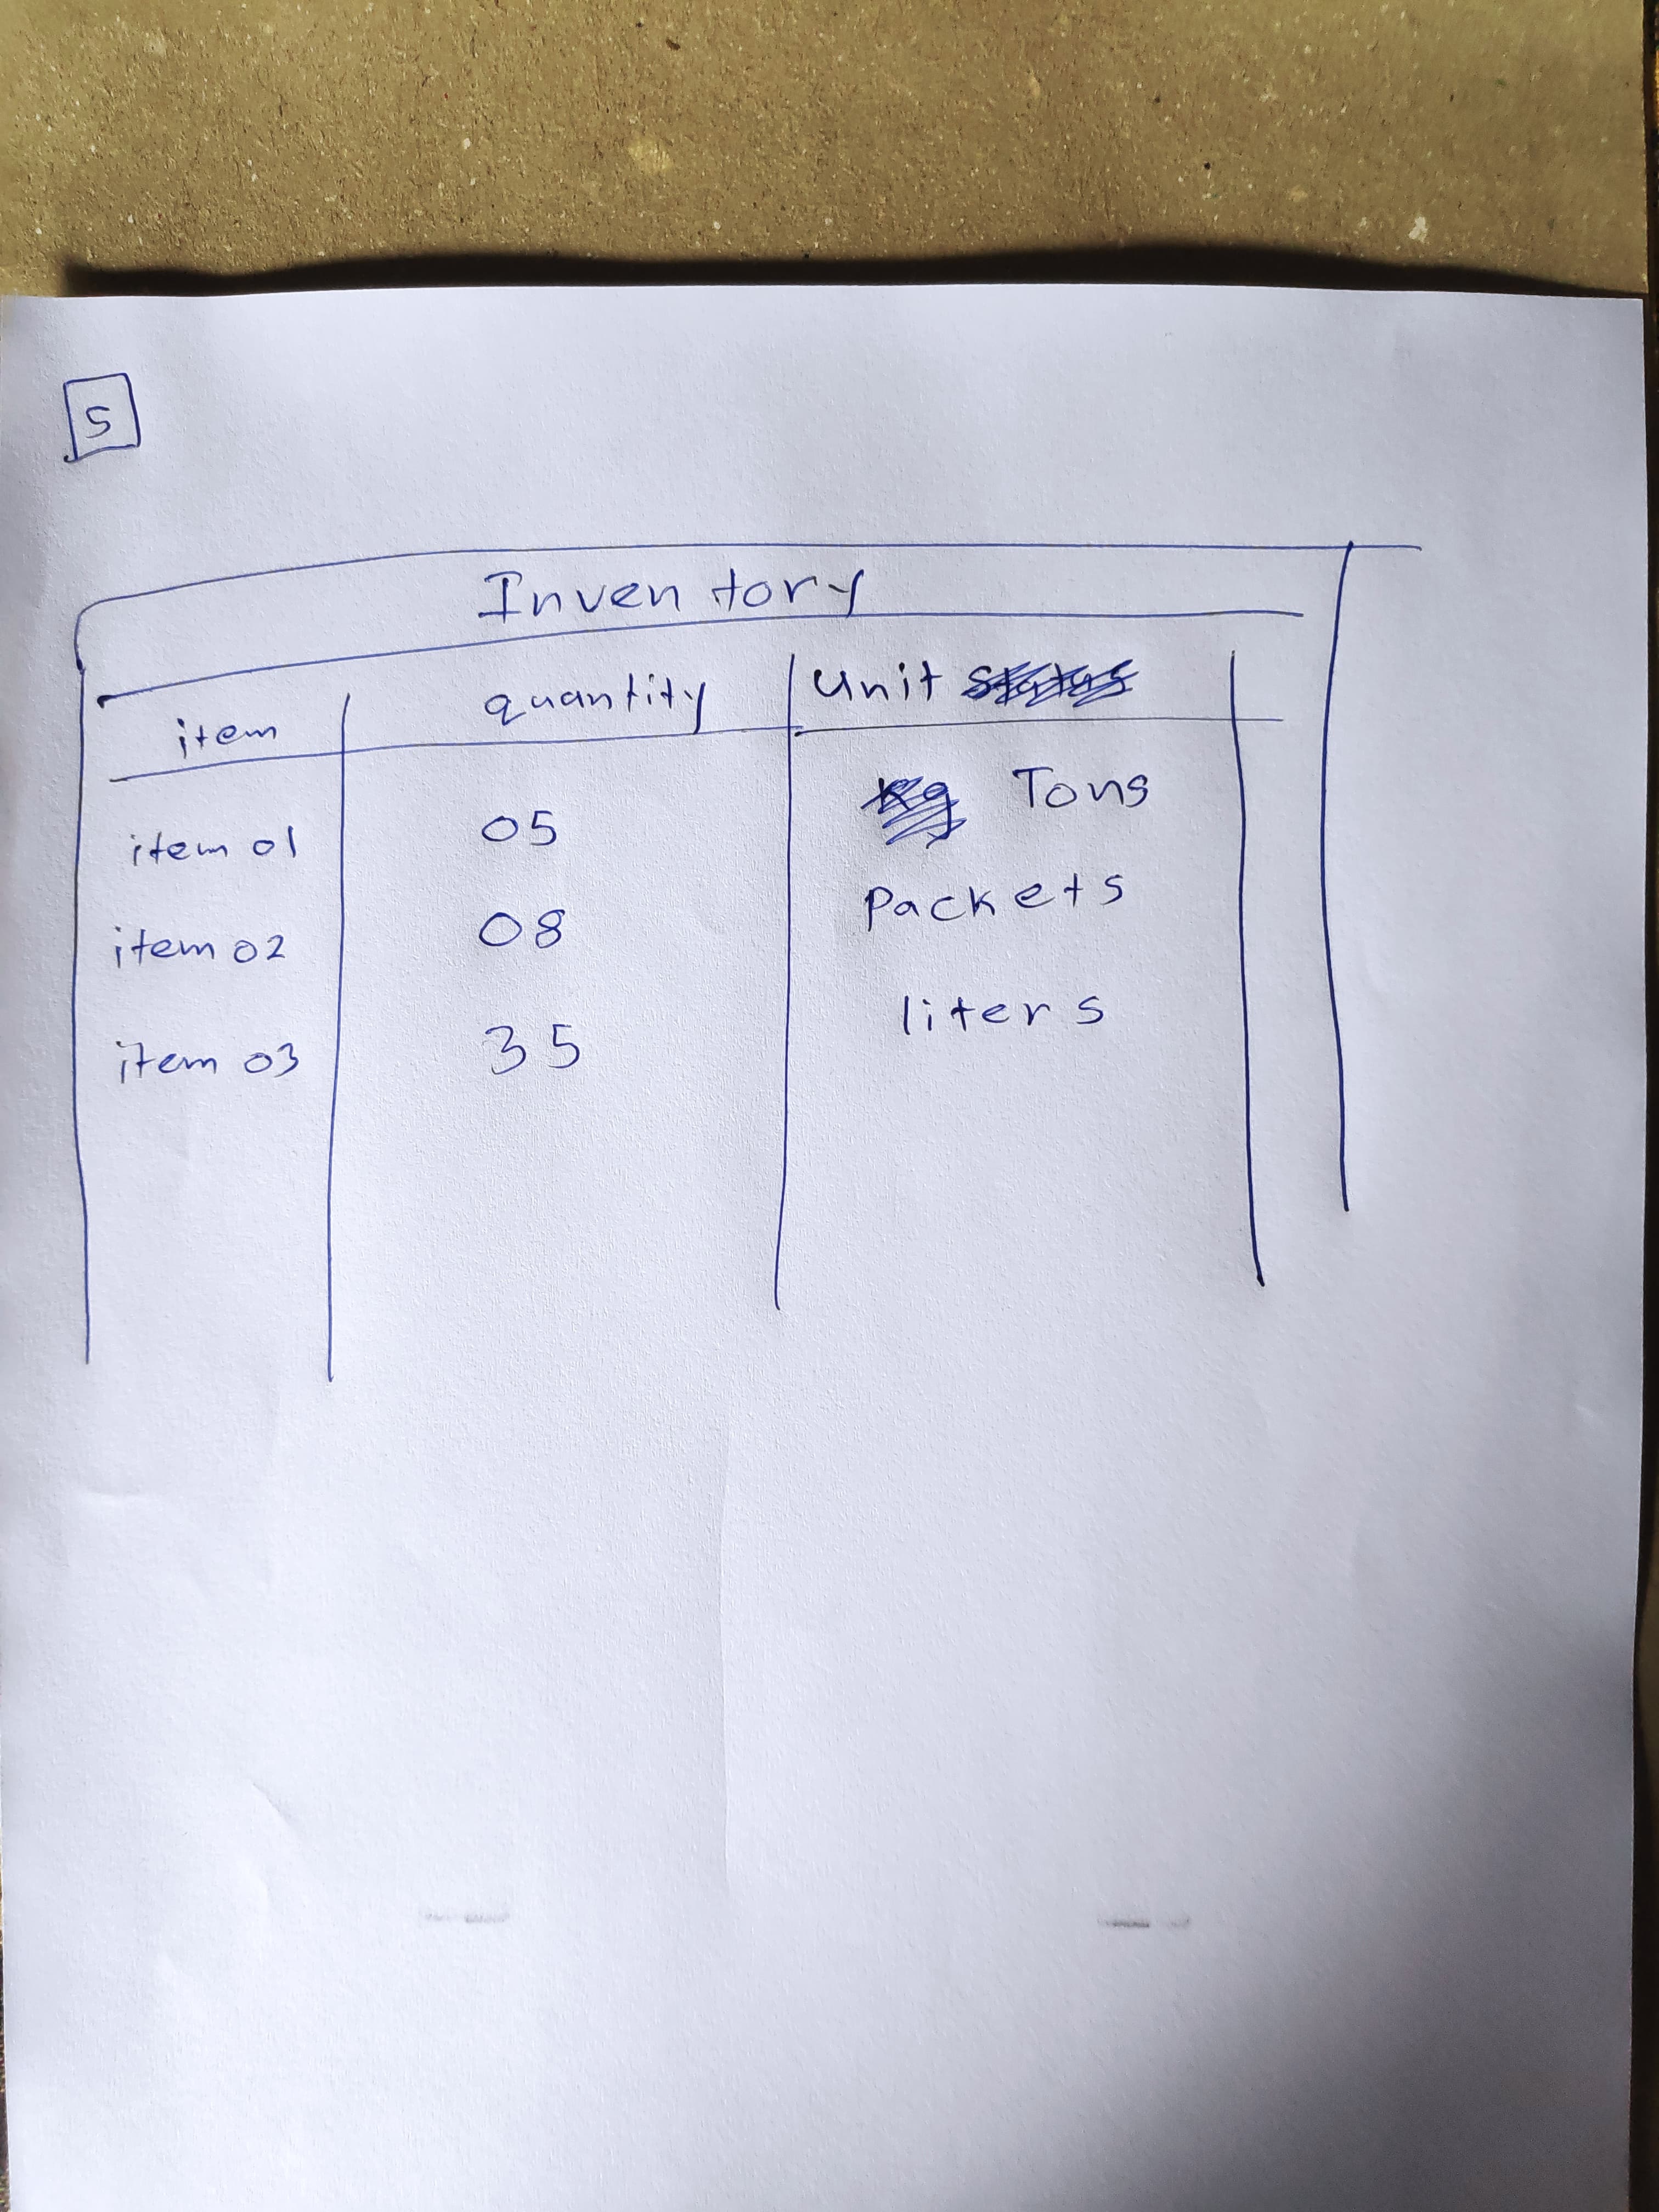 5
Inventory
item quantity Unit
item 01 05 Tons
item 02 08 Packets
item 03 35 liters